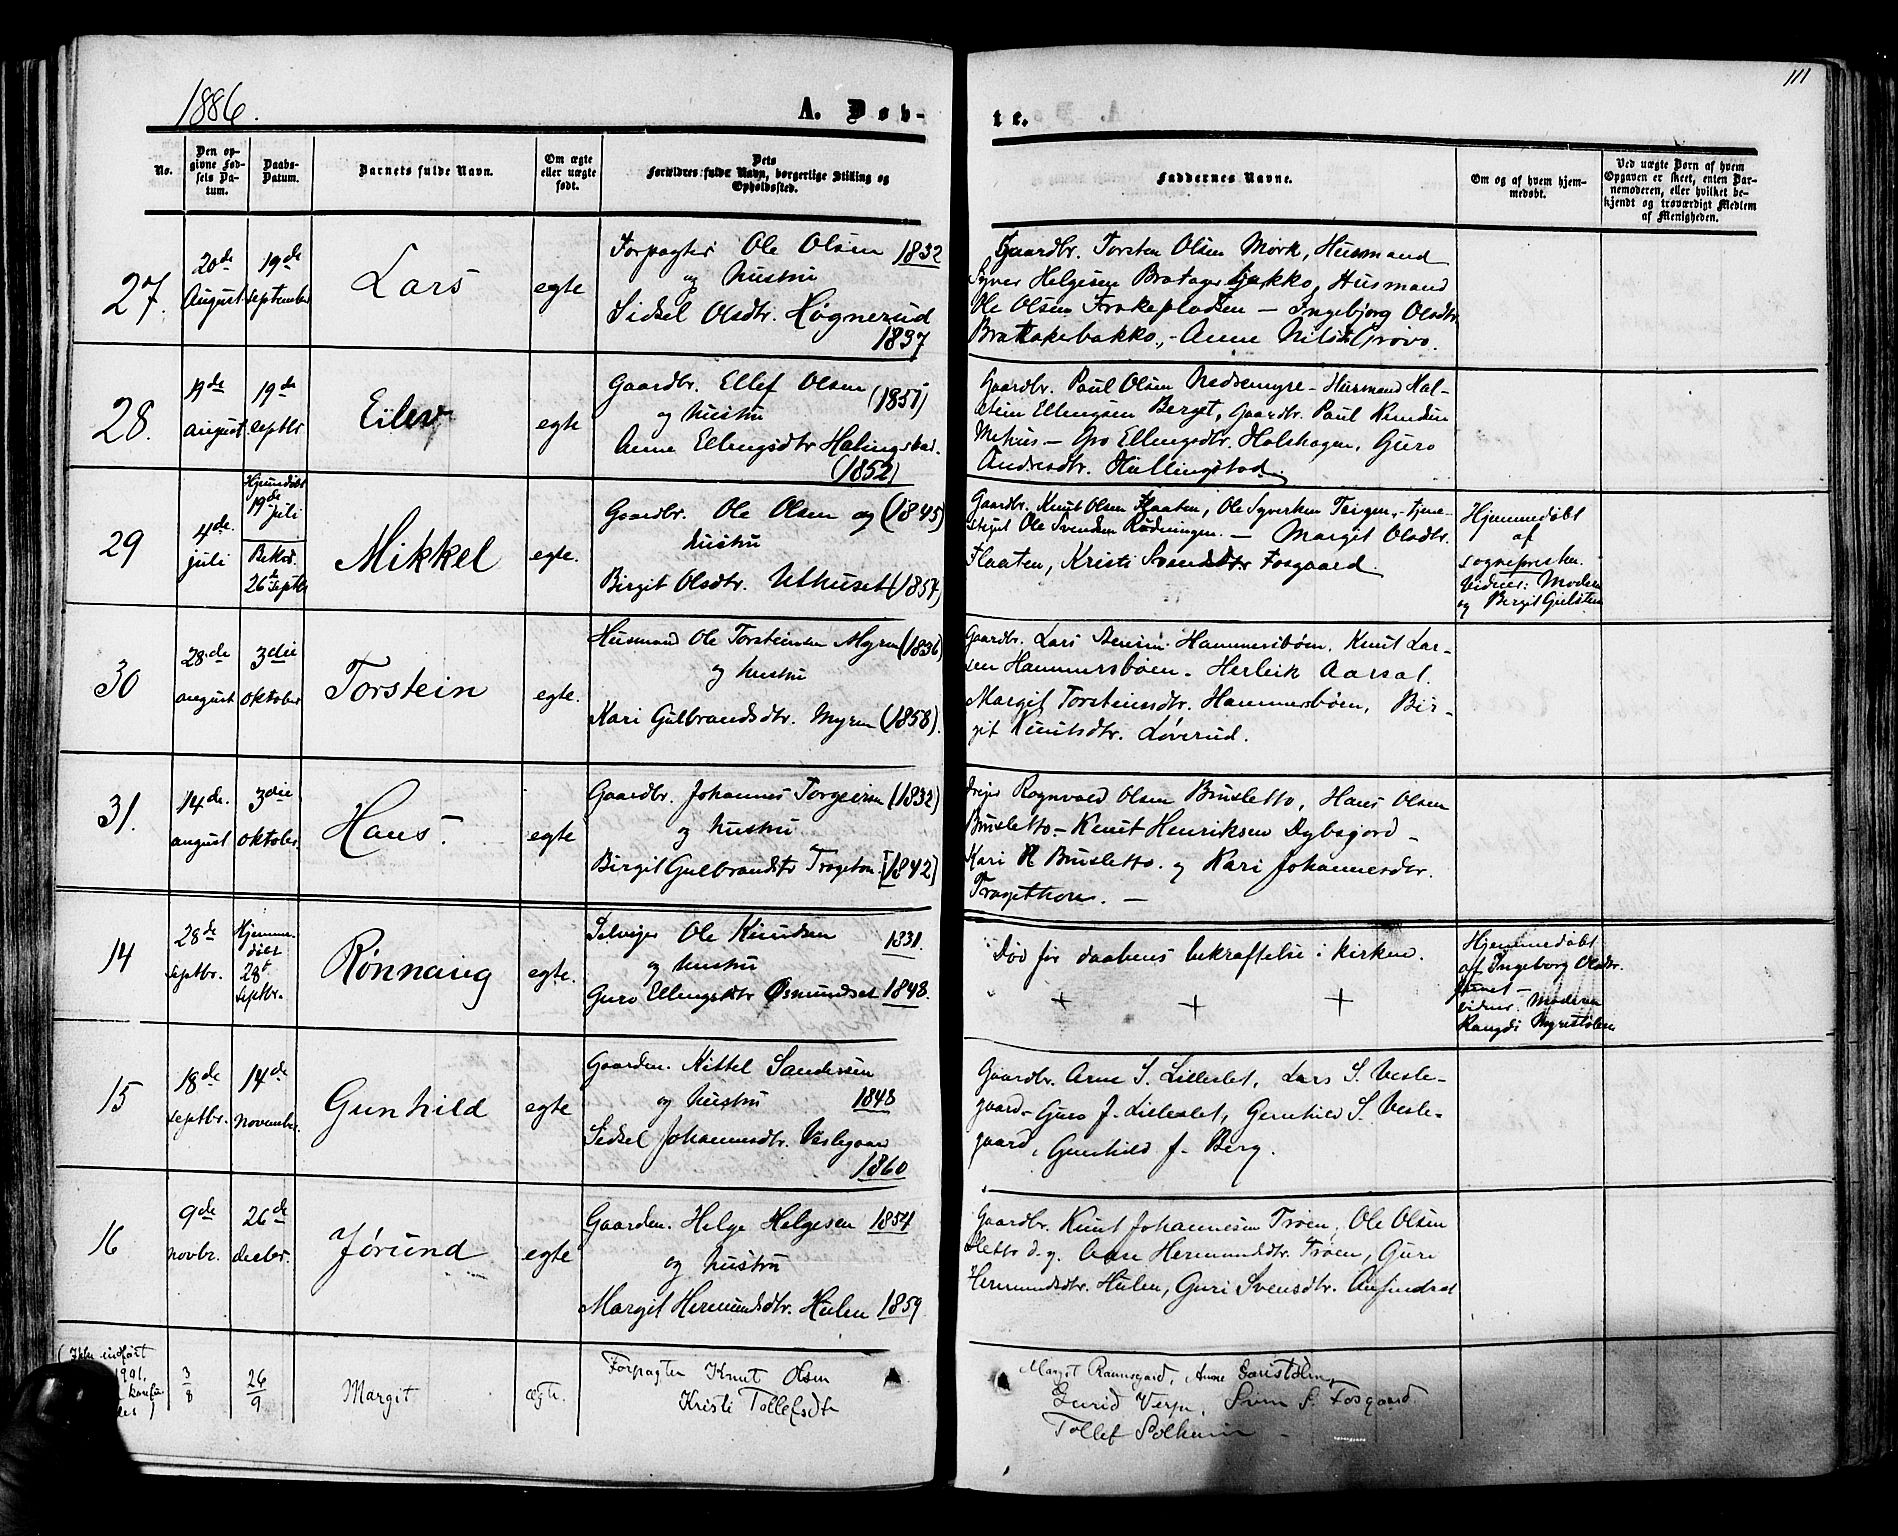 1886.
A. Døb-
te.
111
No.
Den op-
givne Fød-
sels Da-
tum.
Daabs-
Datum.
Barnets fulde Navn.
Om ægte
eller uægte
født.
Dets
Forældres fulde Navn, borgerlige Stilling og
Opholdssted.
Faddernes Navne.
Om og af hvem hjem-
medøbt.
Ved uægte Børn af hvem
Opgaven er skeet, enten Bar-
nemoderen, eller hvilket be-
kjendt og troværdigt Medlem
af Menigheden.
27.
20de
August
19de
september
Lars
egte
Forpagter Ole Olsen 1832
og hustru
Sidsel Olsdtr. Høgnerud
1837
Gaardbr. Torsten Olsen Mørk, Husmand
Syver Helgesen Husmand
Ole Olsen - Ingebjørg Olsdtr
- Anne
28.
19de
august
19de
septbr
Eilev
egte
Gaardbr. Ellef Olsen (1851)
og hustru
Anne Ellingsdtr
(1852)
Gaardbr. Paul Olsen Nedremyre - Husmand Hal-
stein Ellingsen Berget, Gaardbr. Paul
- Gro Ellingsdtr. Holshagen, Guro
Andresdtr. Hallingstad.
29
4de
juli
Hjemdøbt
19de
juli
Bekr.
26de septbr
Mikkel
egte.
Gaardbr. Ole Olsen og (1845)
hustru
Birgit Olsdtr. Uthuset (1854)
Gaardbr. Knut Olsen Flaaten, Ole Syversen Teigen, - tjene-
Ole Svendsen - Margit Olsdtr.
Flaaten, Kristi Svendsdtr Fosgaard.
Hjemmedøbt
af
sognepresten.
Vidner: Moderen
og Birgit
30
28de
august
3die
oktober
Torstein
egte.
Husmand Ole Torsteinsen Myren (1836)
og hustru
Kari Gulbrandsdtr. Myren (1858).
Gaardbr. Lars Hammersbøen, Knut Lar-
sen Hammersbøen - Herleik
Margit Torsteinsdtr. Hammersbøen, Bir-
git Knutsdtr. Løverud.
31.
14de.
august
3die
oktober
Hans.
egte
Gaardbr. Johannes Torgeirsen (1832)
og hustru
Birgit Gulbrandsdtr (1842)
Rognvald Olsen Brusletto, Hans Olsen
Brusletto - Knut Henriksen Dybsjord -
Kari Brusletto. og Kari Johannesdtr.
14
28de
septbr.
Hjemme-
døbt
28de
septbr.
Rønnaug
egte.
Selveier Ole Knudsen 1831.
og hustru
Guro Ellingsdtr Øsmundset 1848.
Død før daabens bekræftelse i kirken.
+ + +
Hjemmedøbt
af Ingeborg Olsdtr.
vidner: Moderen
15
18de
septbr.
14de
november
Gunhild
egte
Gaardm. Kittel Sandersen
og hustru 1848
Sidsel Johannesdtr. Veslegaard
1860
Gaardbr. Arne S. Lilleslet, Lars S. Vesle-
gaard - Guro J. Lilleslet, Gunhild S. Vesle-
gaard, Gunhild J. Berg.
16
9de
novbr.
26de
decbr.
Jørund
egte
Gaardm. Helge Helgesen 1854
og hustru
Margit Hermundsdtr. Hulen 1859.
Gaardbr. Knut Johannesen Trøen, Ole Olsen
Hermundsdtr. Trøen, Guri
Hermundsdtr. Hulen, Guri Svensdtr.
(Ikke indført
1901,
3
8
26
9
Margit
ægte.
Forpagter Knut Olsen
Kristi Tollefsdtr
Margit Rannegard, Anne
Gurid Sven S. Fosgaard
Tollef Solheim -